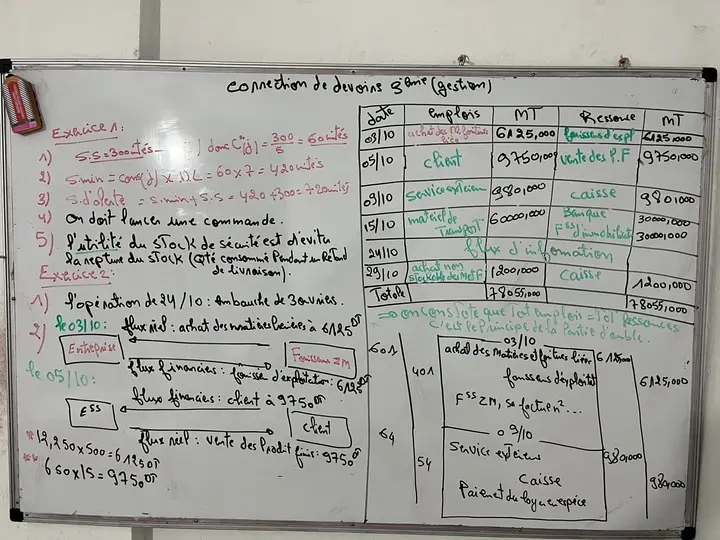 correction de devoirs 3ème (gestion)
Exercice 1:
1) S.S = 300 unités donc C(j) = 300/5 = 60 unités
2) S.min = cons(j) x DL = 60 x 7 = 420 unités
3) S.d'alerte = S.min + S.S = 420 + 300 = 720 unités
4) on doit lancer une commande.
5) l'utilité du stock de sécurité est d'éviter
la repture du stock (Qté consommé Pendant un Retard
de livraison).
Exercice 2:
1) l'opération de 24/10: embauche de 3 ouvriers.
2) le 03/10: flux réel: achat des matières Premières à 6125DT
Entreprise
Fournisseur ZM
flux financiers: fournisse d'exploitation: 6125DT
le 05/10:
flux financiers: client à 9750DT
ESS
client
flux réel: vente des Produit finis: 9750DT
* 12,250 x 500 = 6125DT
** 650 x 15 = 9750DT
date emplois MT Ressource MT
03/10 6125,000 6125,000
05/10 client 9750,000 ventes des P.F 9750,000
09/10 service extérieur 980,000 caisse 980,000
15/10 matériel de Transport 60000,000 Banque 30000,000
Fss d'immobilisat 30000,000
24/10 flux d'information
29/10 achat non stockable de M et F 1200,000 caisse 1200,000
Totale 78055,000 78055,000
=> on constate que Tot emploi = Tot Ressources
c'est le principe de la Partie double.
03/10
601 achat des Matières et fournitures liées 6125,000
401 fournisseurs d'exploitat 6125,000
Fss ZM, sa facture n°...
09/10
64 Service extérieur 980,000
54 Caisse 980,000
Paiement du loyer en espèce